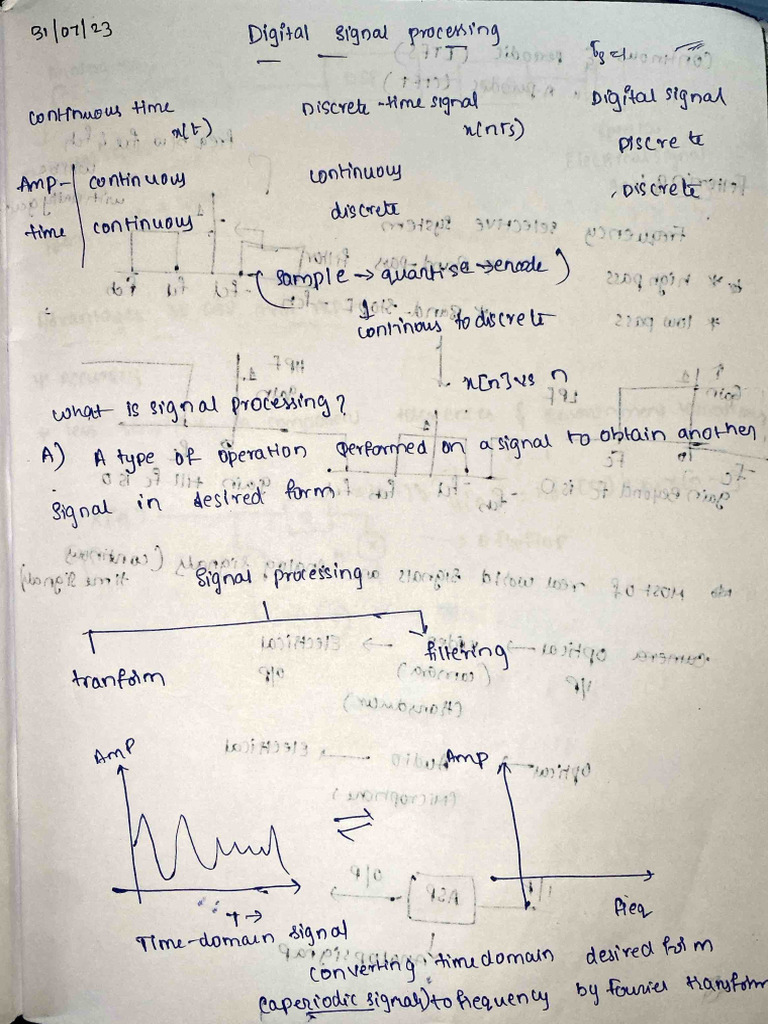 31/07/23
Digital signal processing
continuous time
x(t)
Discrete-time signal
x(nTs)
Digital signal
Discrete
Amp- continuous
continuous
Discrete
time continuous
discrete
(sample → quantise → encode)
continous to discrete
x[n] vs n
What is signal processing?
A) A type of operation performed on a signal to obtain another
signal in desired form
Signal processing
tranform
filtering
Amp
Amp
T →
Freq
Time-domain signal
converting time domain desired form
(aperiodic signals) to frequency by fourier transform